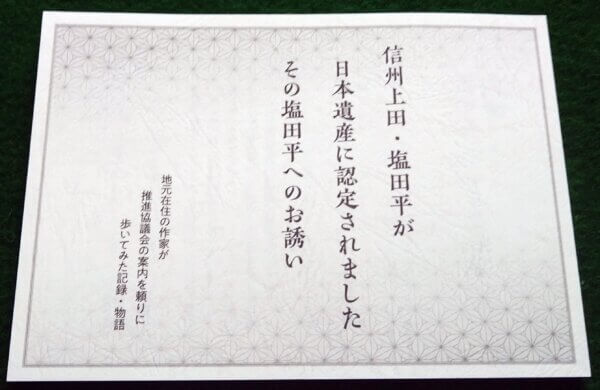 信州上田・塩田平が
日本遺産に認定されました
その塩田平へのお誘い
地元在住の作家が
推進協議会の案内を頼りに
歩いてみた記録・物語